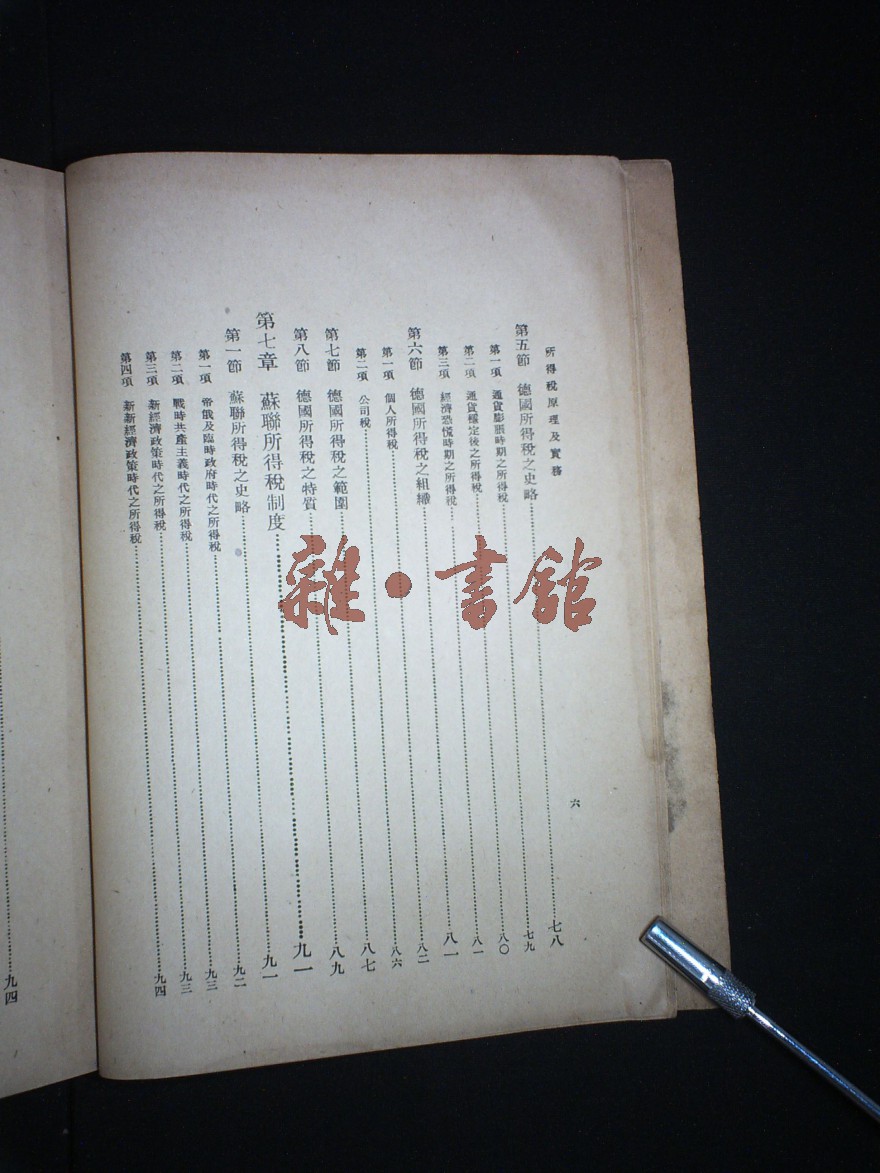 所得稅原理及實務
六
第五節 德國所得稅之史略……七八
第一項 通貨膨脹時期之所得稅……七九
第二項 通貨穩定後之所得稅……八〇
第三項 經濟恐慌時期之所得稅……八一
第六節 德國所得稅之組織……八一
第一項 個人所得稅……八二
第二項 公司稅……八六
第七節 德國所得稅之範圍……八七
第八節 德國所得稅之特質……八九
第七章 蘇聯所得稅制度……九一
第一節 蘇聯所得稅之史略……九一
第一項 帝俄及臨時政府時代之所得稅……九二
第二項 戰時共產主義時代之所得稅……九三
第三項 新經濟政策時代之所得稅……九三
第四項 新新經濟政策時代之所得稅……九四
……九四
雜·書館